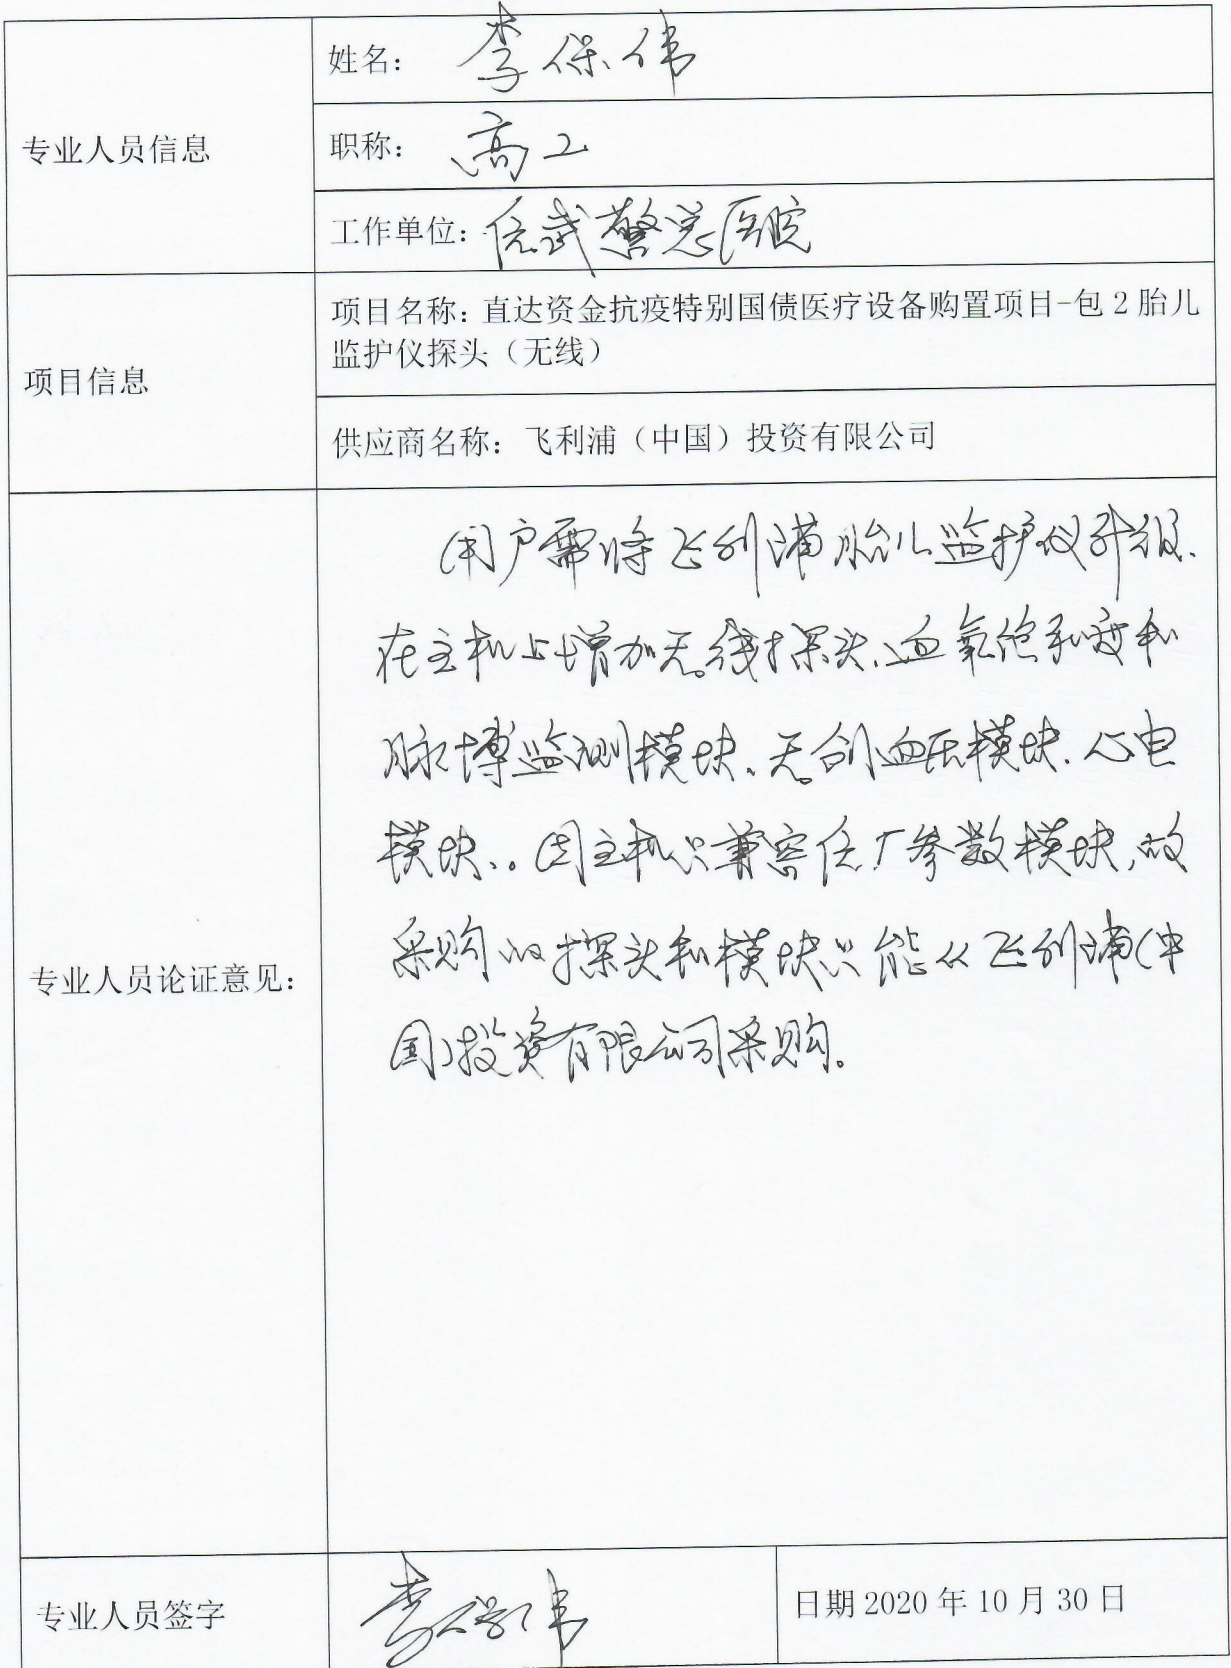 专业人员信息
姓名：李保伟
职称：高工
工作单位：原武警总医院
项目信息
项目名称：直达资金抗疫特别国债医疗设备购置项目-包 2 胎儿
监护仪探头（无线）
供应商名称：飞利浦（中国）投资有限公司
专业人员论证意见：
用户需将飞利浦胎儿监护仪升级、
在主机上增加无线探头、血氧饱和度和
脉搏监测模块、无创血压模块、心电
模块。因主机只兼容原厂参数模块，故
采购的探头和模块只能从飞利浦（中
国）投资有限公司采购。
专业人员签字
李保伟
日期 2020 年 10 月 30 日